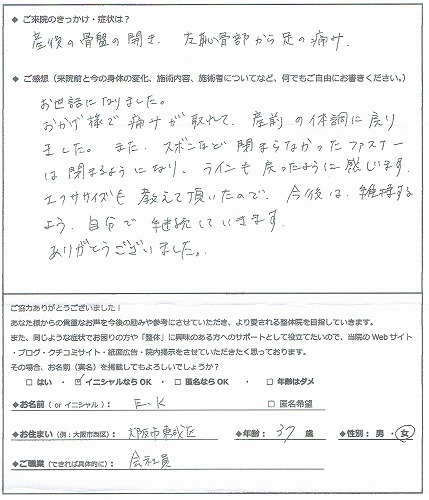 ◆ ご来院のきっかけ・症状は？
産後の骨盤の開き、左恥骨部から足の痛み.
◆ ご感想（来院前と今の身体の変化、施術内容、施術者についてなど、何でもご自由にお書きください。）
お世話になりました。
おかげ様で痛みが取れて、産前の体調に戻り
ました。また、ズボンなど閉まらなかったファスナー
は閉まるようになり、ラインも戻ったように感じます.
エクササイズも教えて頂いたので、今後は、維持する
よう、自分で継続していきます.
ありがとうございました。
ご協力ありがとうございました！
あなた様からの貴重なお声を今後の励みや参考にさせていただき、より愛される整体院を目指していきます。
また、同じような症状でお困りの方や「整体」に興味のある方へのサポートとして役立てたいので、当院のWebサイト
・ブログ・クチコミサイト・紙面広告・院内掲示をさせていただきたく思っております。
その場合、お名前（実名）を掲載してもよろしいでしょうか？
□ はい ・ ☑ イニシャルならOK ・ □ 匿名ならOK ・ □ 年齢はダメ
◆お名前（or イニシャル）： E.K □ 匿名希望
◆お住まい（例：大阪市西区）： 大阪市東成区 ◆年齢： 37 歳 ◆性別： 男 ・ 女
◆ご職業（できれば具体的に）： 会社員